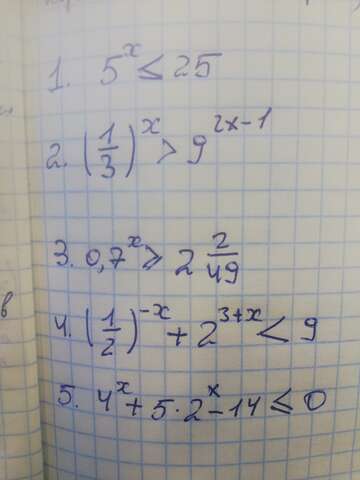 1. 5^x ≤ 25
2. (1/3)^x > 9^(2x-1)
3. 0,7^x ≥ 2 2/49
4. (1/2)^(-x) + 2^(3+x) < 9
5. 4^x + 5·2^x - 14 ≤ 0